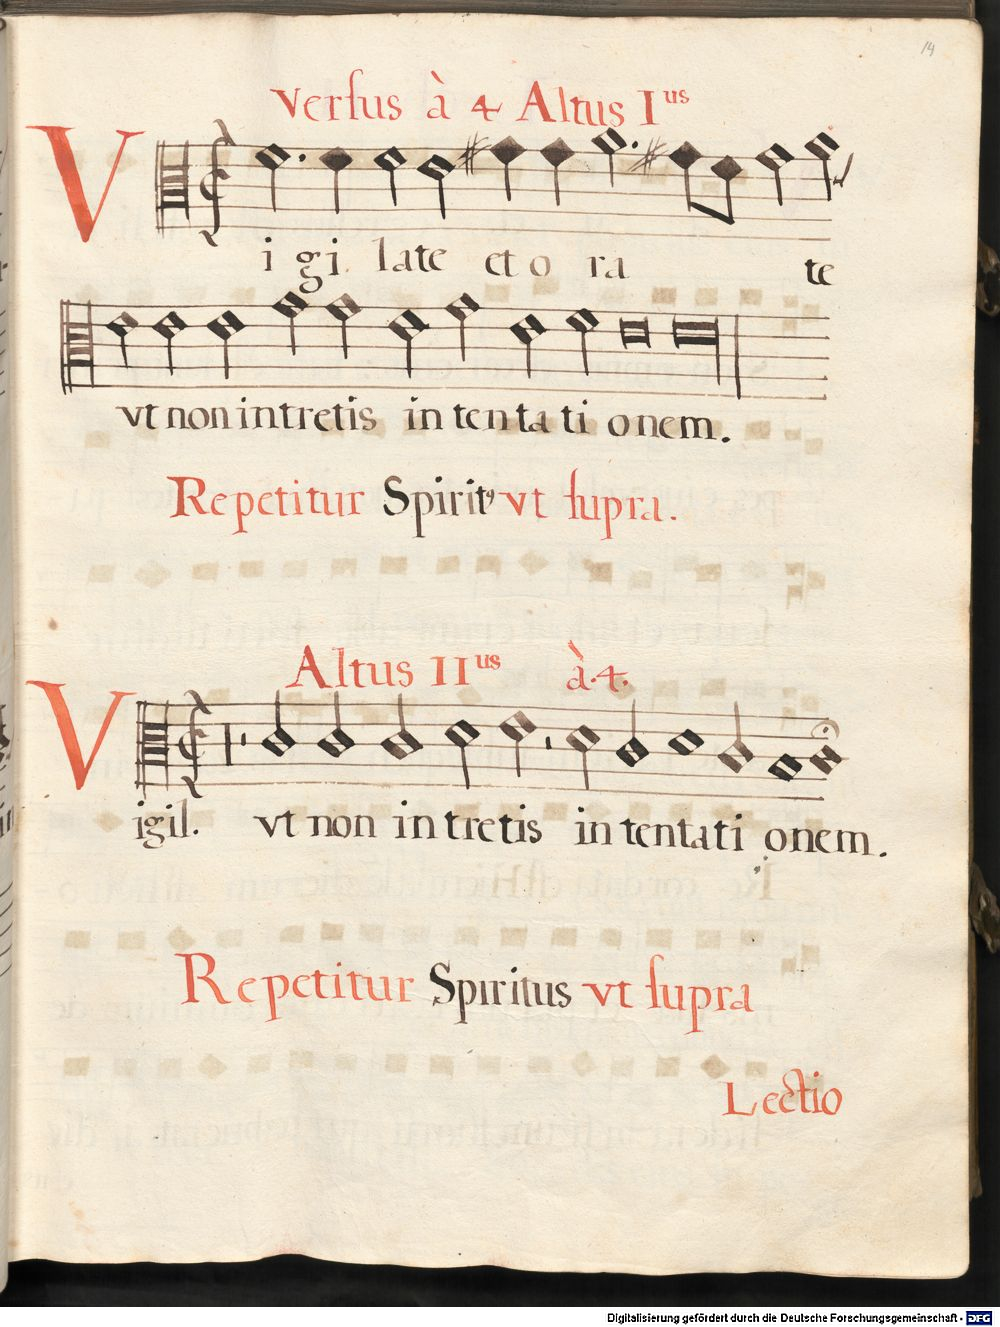 14
Versus à 4 Altus I us
Vigilate et orate
vt non intretis in tentationem.
Repetitur Spiritꝰ vt supra.
Altus II us à.4.
Vigil. vt non intretis in tentationem.
Repetitur Spiritus vt supra
Lectio
Digitalisierung gefördert durch die Deutsche Forschungsgemeinschaft - DFG